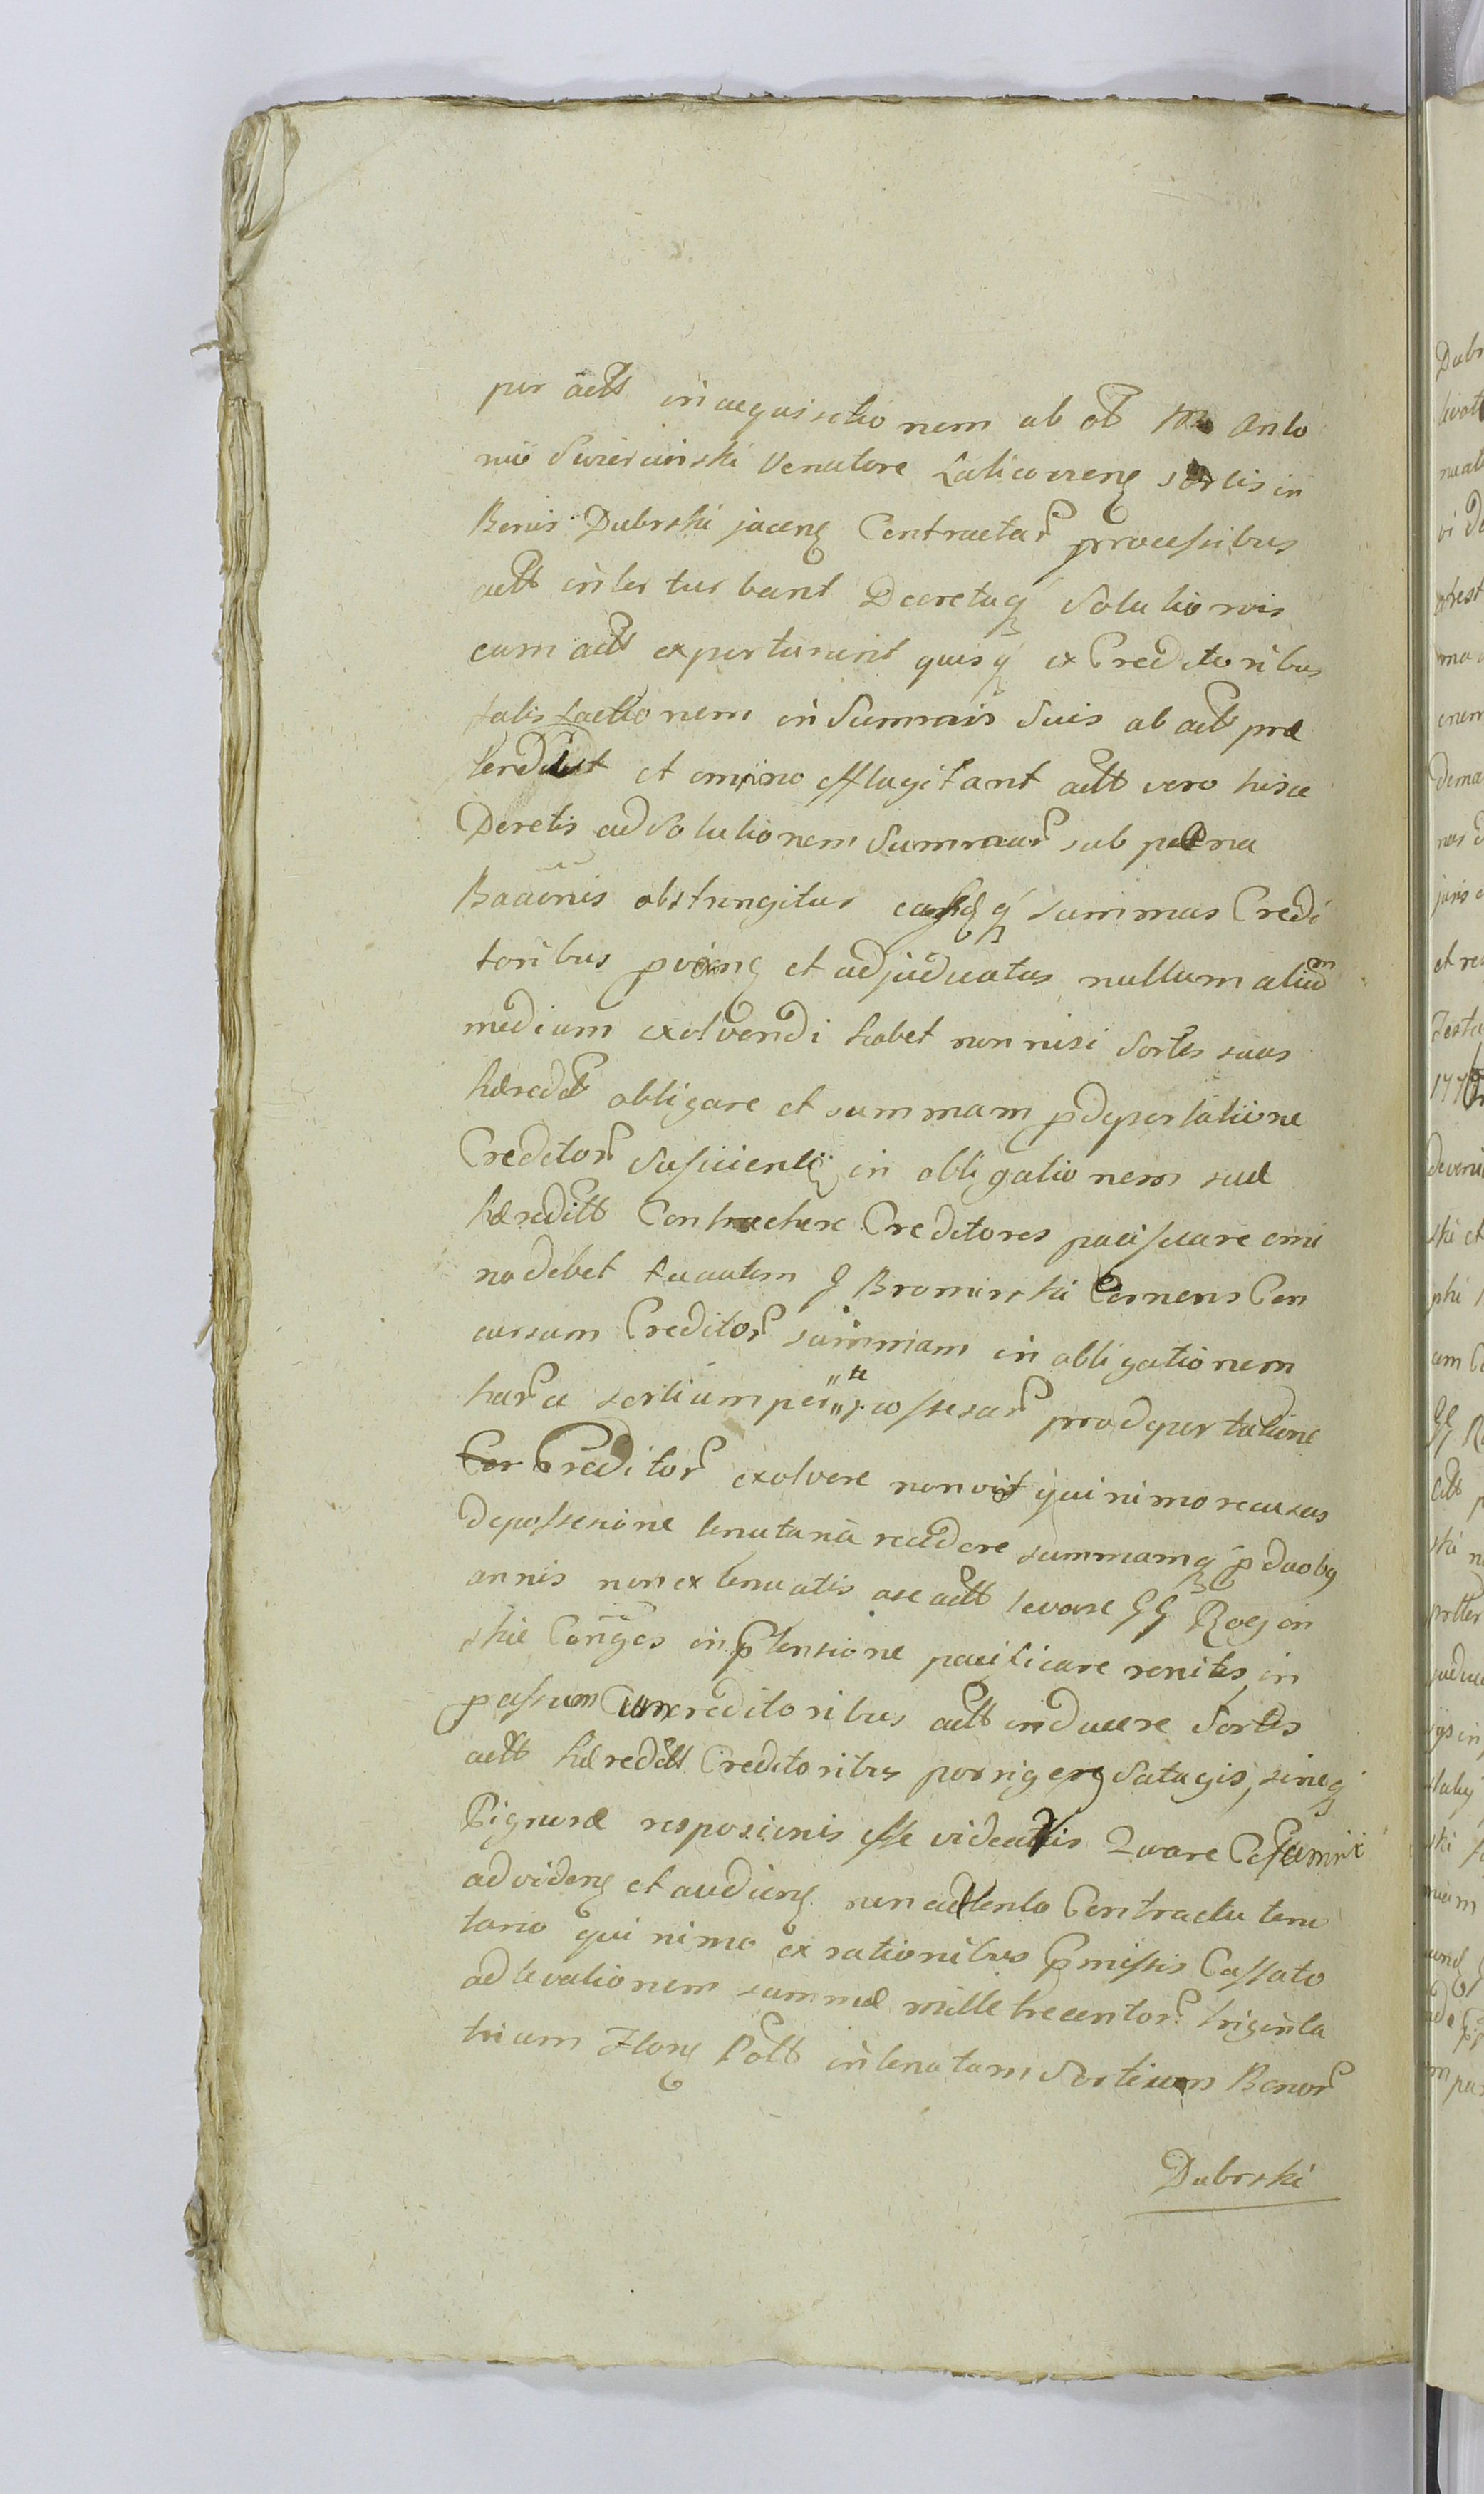 per actt in acquisitionem ab olt Mo Anto
nio Swierczinski Venatore Laticoviens sortis in
Bonis Dubrski jacens Contractar processibus
actt inter turbant Decretaq Solutionis
cum actt expertunint quisq ex Creditoribus
satisfactionem in Summis Suis ab actt præ
tendit et omnino efflagitant actt vero hisce
Deretis ad Solutionem Summar sub pæna
Baãonis obstringitur easq summas Credi
toribus et adjudicatas nullum alium
medium exolvendi habet non nisi Sortes suas
hæredtt obligare et summam p deportatione
Creditor Suficients in obligationem suæ
hæreditt Contractare Creditores pacificare omi
no debet tu autem G Bromirski Cernens Con
cursum Creditor summam in obligationem
har a sortium per te possesar pro deportatione
Cor Creditor exolvere non vis quinimo recusas
de possesione tenutaria recedere summamq p duobq
annis non extenuatis ase actt levare GG Rogon
skie Conges in ptensione pacificare renites, in
passum cum creditoribus actt inducere Sortes
actt hæreditt Creditoribus porrigere Satagis, sineq
Pignoræ resposionis esse videatis Quare
ad videns et audiens non attento Contractu tenu
tario quinimo ex rationibus pmissis Cassato
ad levationem summæ mille trecentor triginta
trium Flors Poltt in tenutam Sortium Bonor
Dubrski